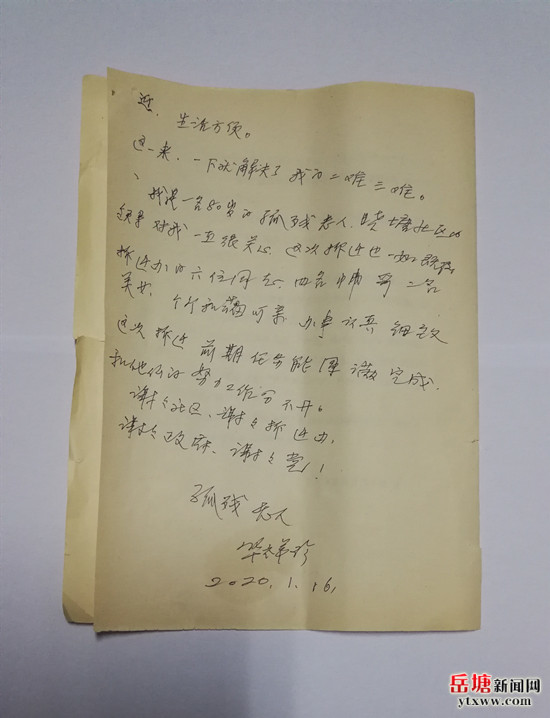 近，
生活方便。
这一来，一下就解决了我的二难三难。
我是一名80岁的孤残老人，社区的
领导对我一直很关心，这次拆迁也一如既往
拆迁办的六位同志，四名帅哥二名
美女，个个和蔼可亲，办事认真细致
这次拆迁前期任务能圆满完成，
和他们的努力工作分不开。
谢谢社区、谢谢拆迁办，
谢谢政府、谢谢党！
孤残老人
2020.1.16,
岳塘新闻网
ytxww.com